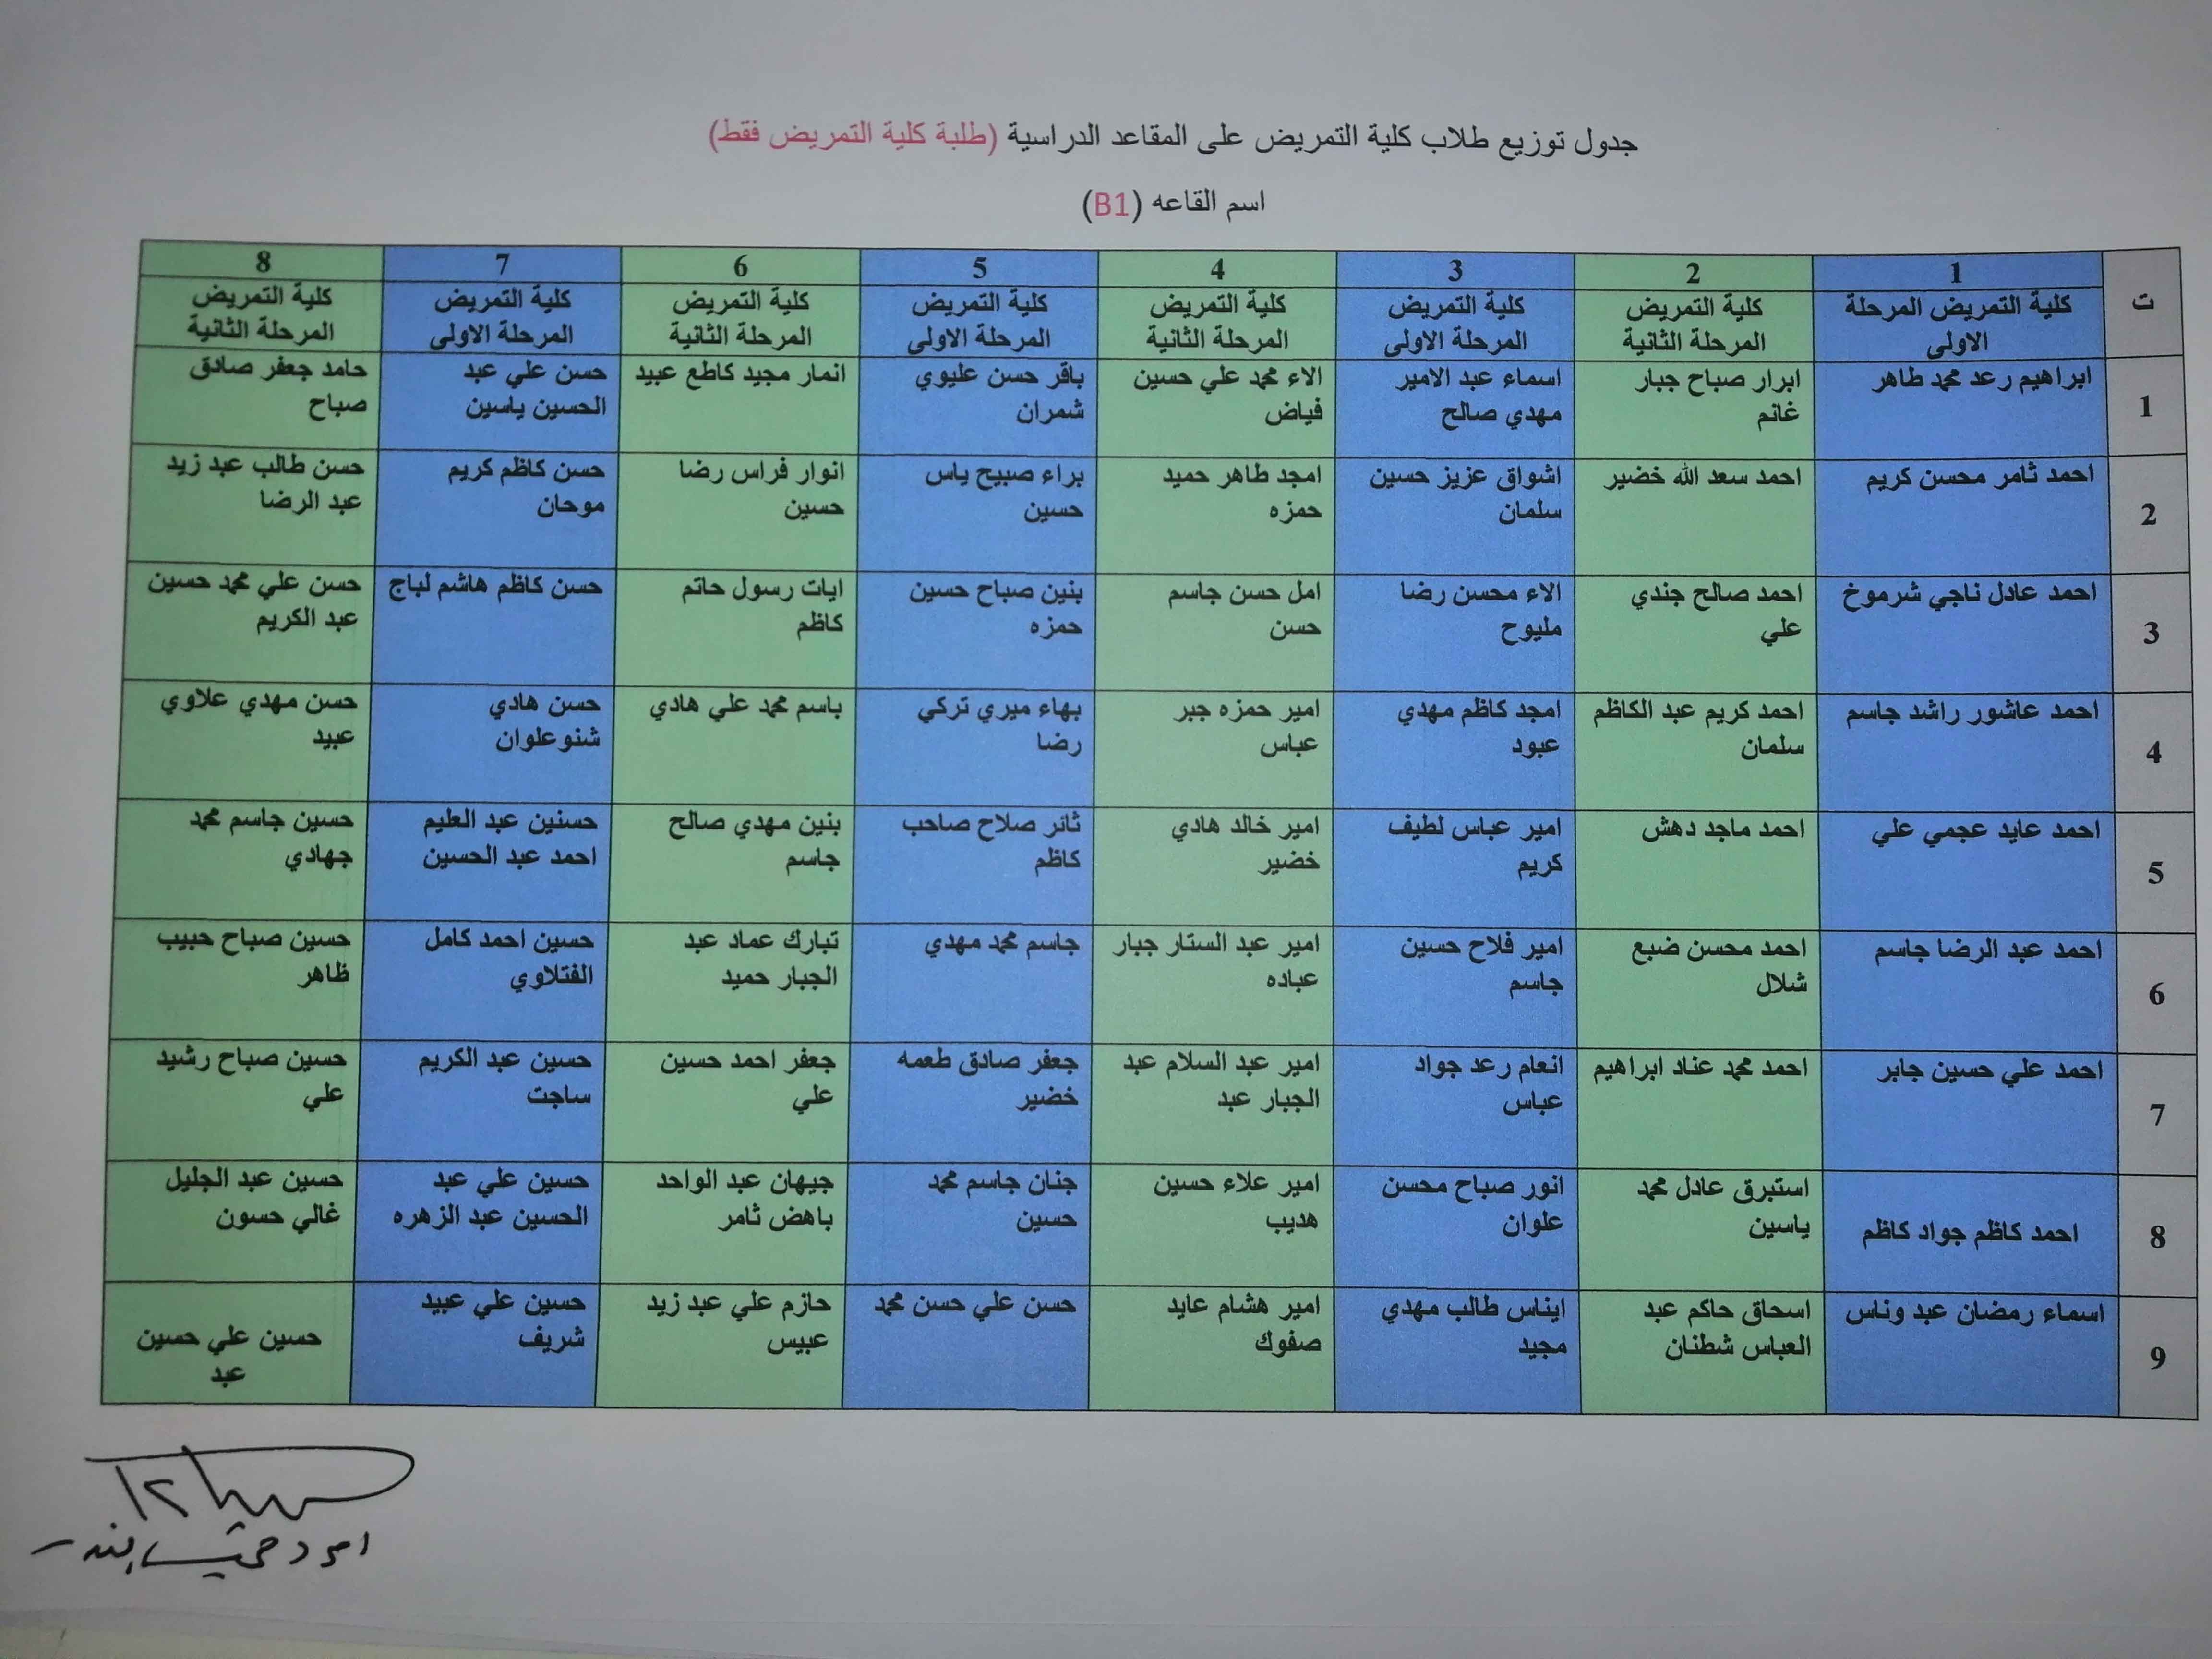 جدول توزيع طلاب كلية التمريض على المقاعد الدراسية (طلبة كلية التمريض فقط)
اسم القاعه (B1)
ت 1 2 3 4 5 6 7 8
كلية التمريض المرحلة كلية التمريض كلية التمريض كلية التمريض كلية التمريض كلية التمريض كلية التمريض كلية التمريض
الاولى المرحلة الثانية المرحلة الاولى المرحلة الثانية المرحلة الاولى المرحلة الثانية المرحلة الاولى المرحلة الثانية
1 ابراهيم رعد محمد طاهر ابرار صباح جبار اسماء عبد الامير الاء محمد علي حسين باقر حسن عليوي انمار مجيد كاطع عبيد حسن علي عبد حامد جعفر صادق
غانم مهدي صالح فياض شمران الحسين ياسين صباح
2 احمد ثامر محسن كريم احمد سعد الله خضير اشواق عزيز حسين امجد طاهر حميد براء صبيح ياس انوار فراس رضا حسن كاظم كريم حسن طالب عبد زيد
سلمان حمزه حسين حسين موحان عبد الرضا
3 احمد عادل ناجي شرموخ احمد صالح جندي الاء محسن رضا امل حسن جاسم بنين صباح حسين ايات رسول حاتم حسن كاظم هاشم لباج حسن علي محمد حسين
علي مليوح حسن حمزه كاظم عبد الكريم
4 احمد عاشور راشد جاسم احمد كريم عبد الكاظم امجد كاظم مهدي امير حمزه جبر بهاء ميري تركي باسم محمد علي هادي حسن هادي حسن مهدي علاوي
سلمان عبود عباس رضا شنو علوان عبيد
5 احمد عايد عجمي علي احمد ماجد دهش امير عباس لطيف امير خالد هادي ثائر صلاح صاحب بنين مهدي صالح حسنين عبد العليم حسين جاسم محمد
كريم خضير كاظم جاسم احمد عبد الحسين جهادي
6 احمد عبد الرضا جاسم احمد محسن ضبع امير فلاح حسين امير عبد الستار جبار جاسم محمد مهدي تبارك عماد عبد حسين احمد كامل حسين صباح حبيب
شلال جاسم عباده الجبار حميد الفتلاوي ظاهر
7 احمد علي حسين جابر احمد محمد عناد ابراهيم انعام رعد جواد امير عبد السلام عبد جعفر صادق طعمه جعفر احمد حسين حسين عبد الكريم حسين صباح رشيد
عباس الجبار عبد خضير علي ساجت علي
8 احمد كاظم جواد كاظم استبرق عادل محمد انور صباح محسن امير علاء حسين جنان جاسم محمد جيهان عبد الواحد حسين علي عبد حسين عبد الجليل
ياسين علوان هديب حسين باهض ثامر الحسين عبد الزهره غالي حسون
9 اسماء رمضان عبد وناس اسحاق حاكم عبد ايناس طالب مهدي امير هشام عايد حسن علي حسن محمد حازم علي عبد زيد حسين علي عبيد حسين علي حسين
العباس شطنان مجيد صفوك عبيس شريف عبد